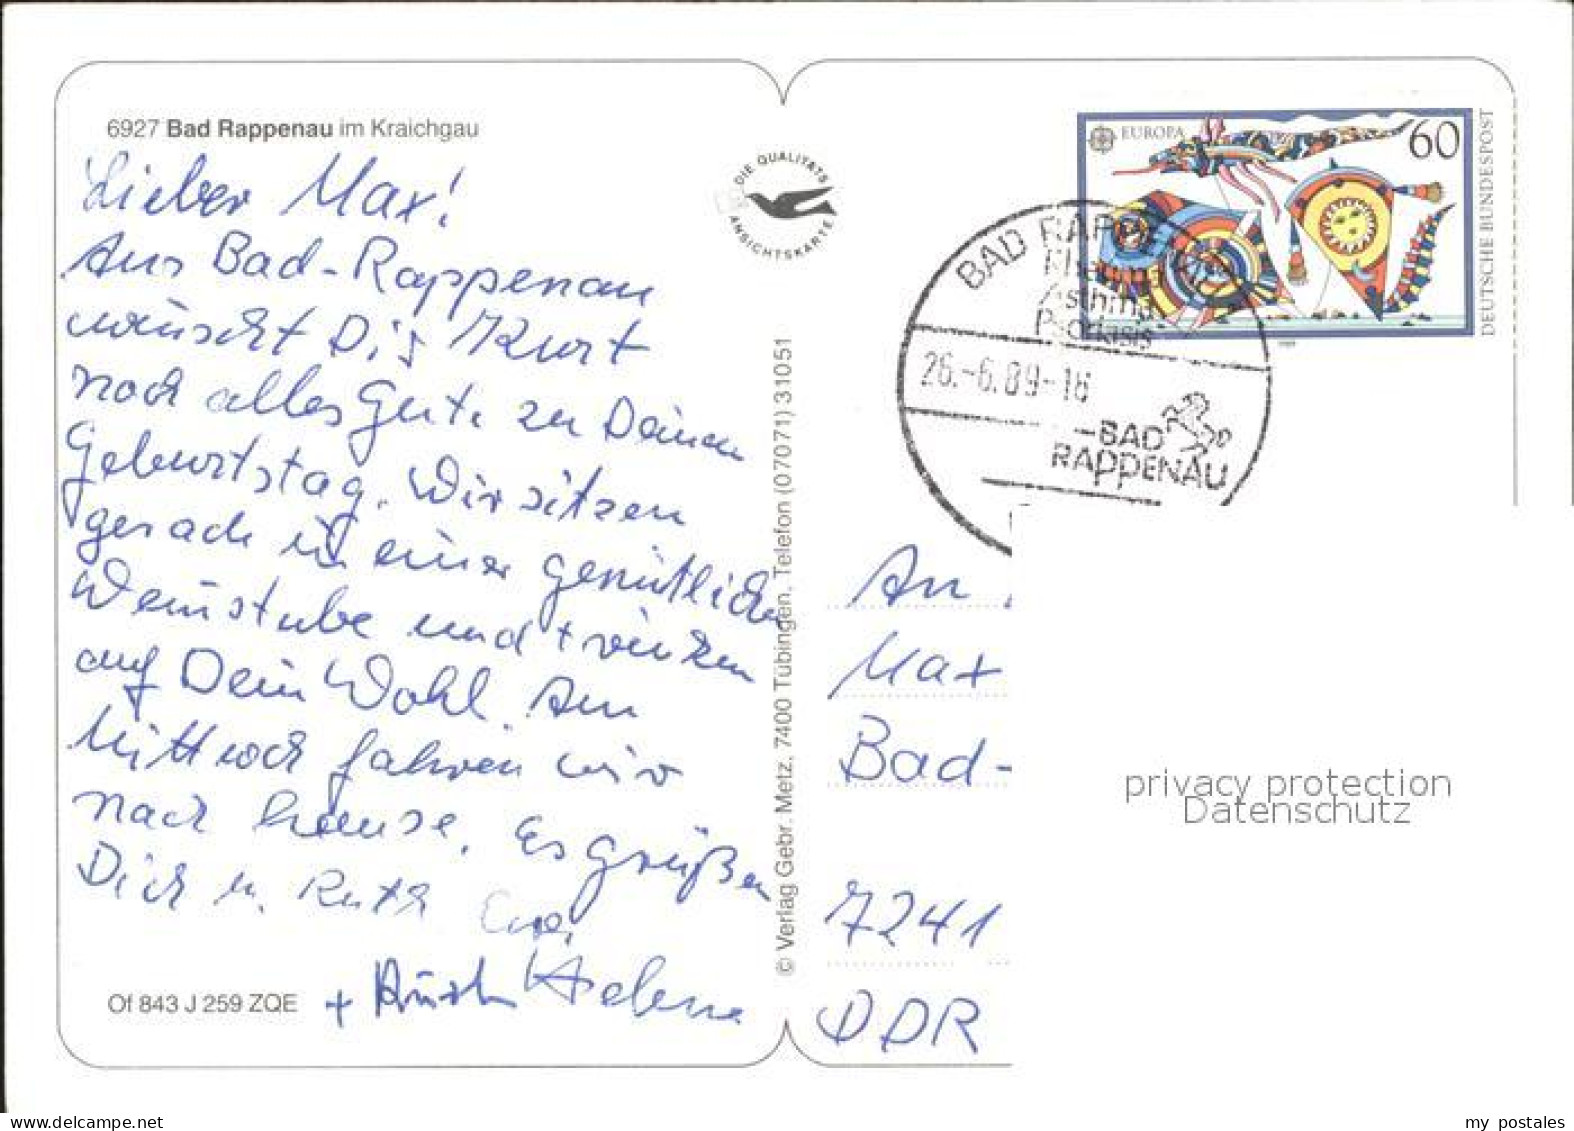 6927 Bad Rappenau im Kraichgau
Lieber Max!
Aus Bad-Rappenau
wünscht Dir Kurt
noch alles Gute zu Deinem
Geburtstag. Wir sitzen
gerade in einer gemütlichen
Weinstube und trinken
auf Dein Wohl. Am
Mittwoch fahren wir
nach hause. Es grüßen
Dich u. Ruth
+ Helene
Of 843 J 259 ZQE
DIE QUALITÄTS
ANSICHTSKARTE
© Verlag Gebr. Metz, 7400 Tübingen, Telefon (07071) 31051
EUROPA 60
DEUTSCHE BUNDESPOST
BAD RAPPENAU
Rheuma
Asthma
Psoriasis
26.-6.89-18
BAD
RAPPENAU
An
Max
Bad-
7241
DDR
privacy protection
Datenschutz
my postales
www.delcampe.net